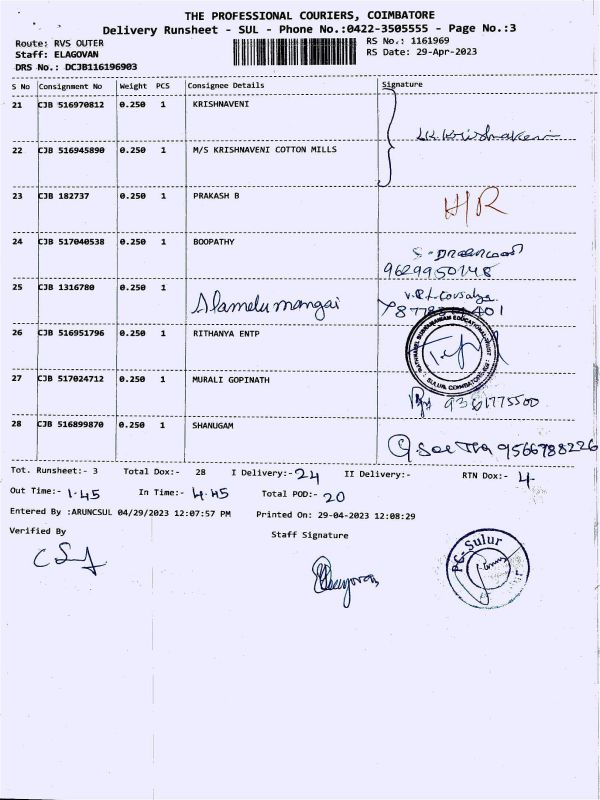 THE PROFESSIONAL COURIERS, COIMBATORE
Delivery Runsheet - SUL - Phone No.:0422-3505555 - Page No.:3
Route: RVS OUTER
RS No.: 1161969
Staff: ELAGOVAN
RS Date: 29-Apr-2023
DRS No.: DCJB116196903
S No Consignment No Weight PCS Consignee Details Signature
21 CJB 516970812 0.250 1 KRISHNAVENI
22 CJB 516945890 0.250 1 M/S KRISHNAVENI COTTON MILLS
23 CJB 182737 0.250 1 PRAKASH B H/R
24 CJB 517040538 0.250 1 BOOPATHY
9629950148
25 CJB 1316780 0.250 1 Alamelu mangai
26 CJB 516951796 0.250 1 RITHANYA ENTP
27 CJB 517024712 0.250 1 MURALI GOPINATH
9361775500
28 CJB 516899870 0.250 1 SHANUGAM
9566788226
Tot. Runsheet:- 3 Total Dox:- 28 I Delivery:- 24 II Delivery:- RTN Dox:- 4
Out Time:- 1.45 In Time:- 4.45 Total POD:- 20
Entered By :ARUNCSUL 04/29/2023 12:07:57 PM Printed On: 29-04-2023 12:08:29
Verified By
Staff Signature
PC-Sulur